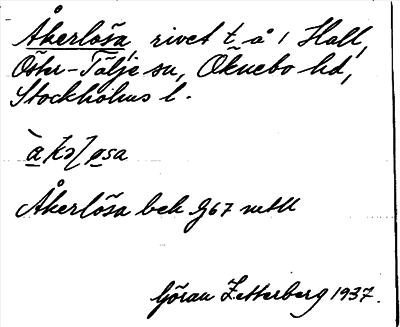 Åkerlösa, rivet t å i Hall,
Öster-Tälje sn, Öknebo hd,
Stockholms l.
Åkerlösa bek G67 mtll
Göran Zetterberg 1937.